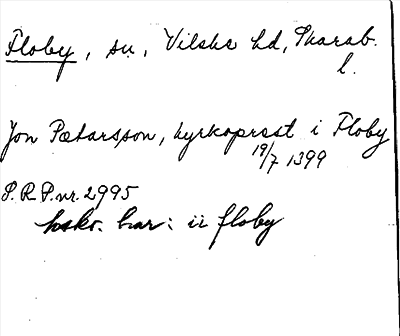 Floby, sn, Vilske hd, Skarab.
l.
Jon Pætarsson, kyrkoprest i Floby
19/7 1399
S.R.P. nr. 2995
har: ii floby